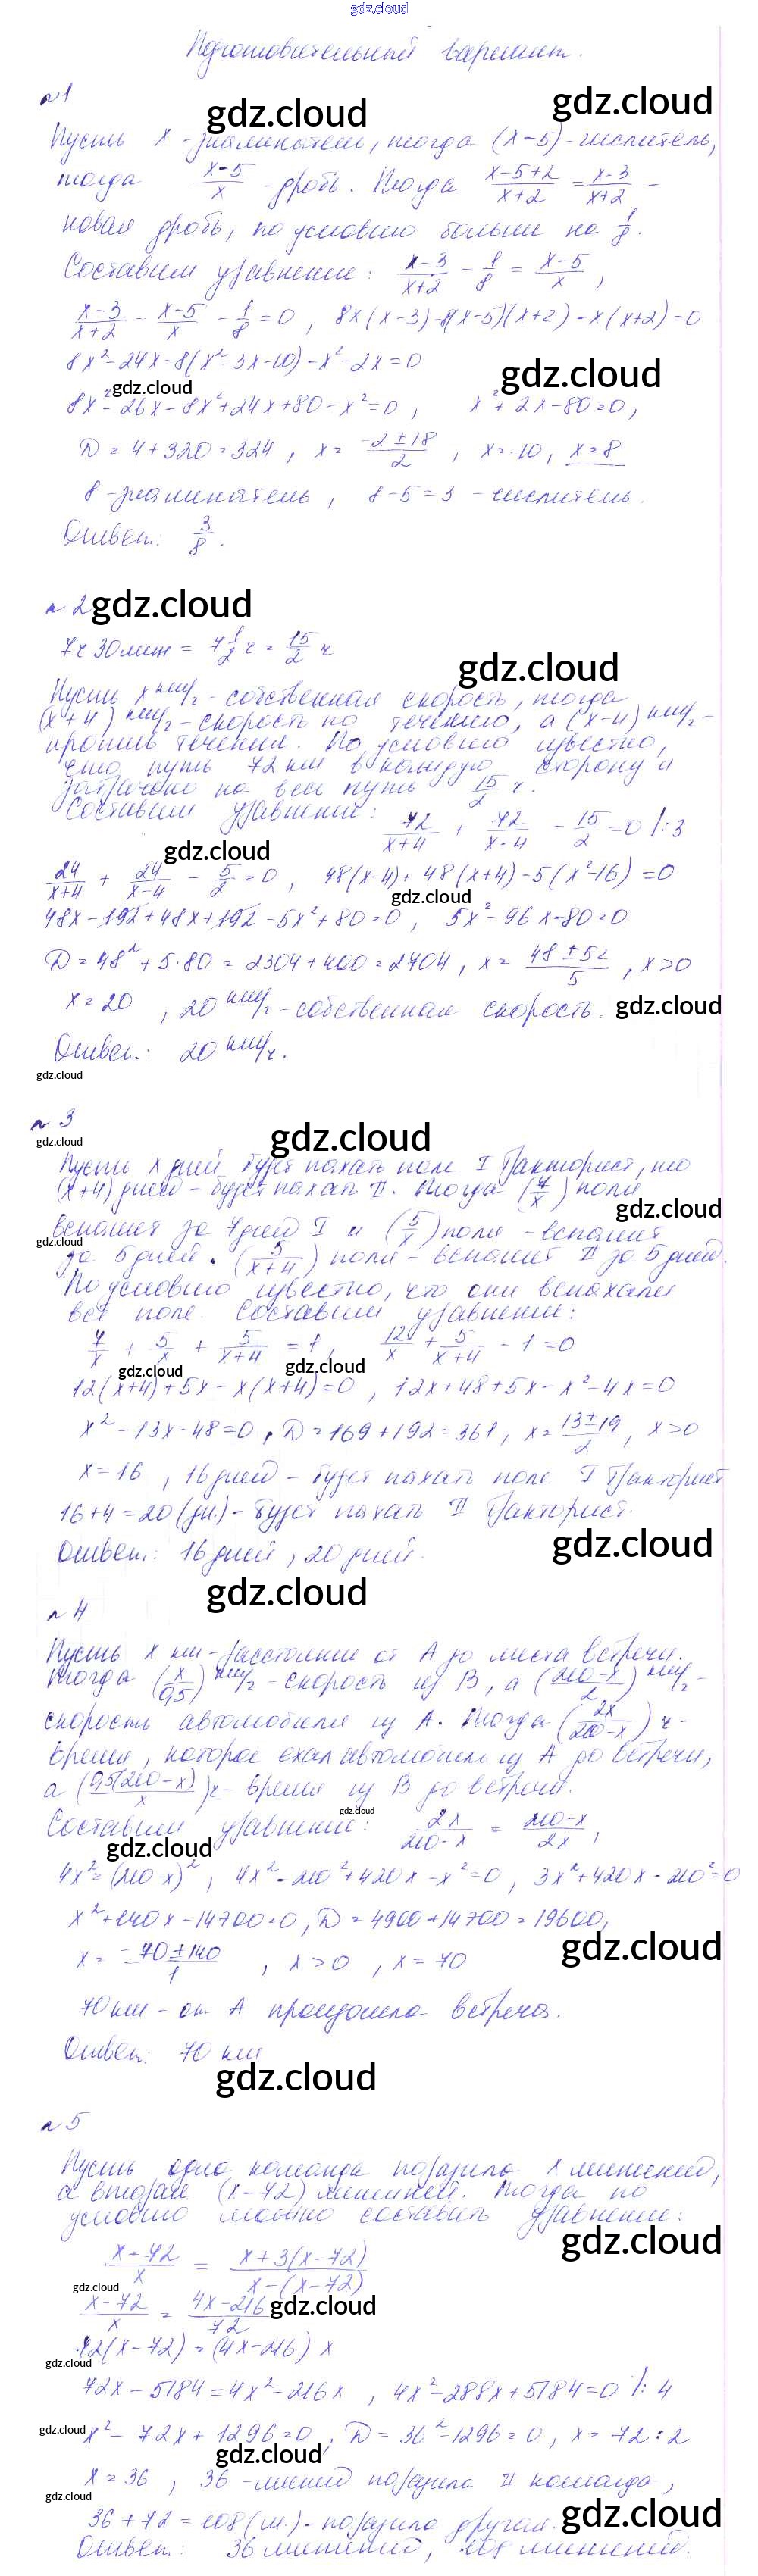 gdz.cloud
Подготовительный вариант.
№1
gdz.cloud
gdz.cloud
Пусть x - знаменатель, тогда (x-5) - числитель,
тогда (x-5)/x - дробь. Тогда (x-5+2)/(x+2) = (x-3)/(x+2) -
новая дробь, по условию больше на 1/8.
Составим уравнение: (x-3)/(x+2) - 1/8 = (x-5)/x,
(x-3)/(x+2) - (x-5)/x - 1/8 = 0, 8x(x-3)-8(x-5)(x+2)-x(x+2)=0
8x²-24x-8(x²-3x-10)-x²-2x=0
gdz.cloud
gdz.cloud
8x²-26x-8x²+24x+80-x²=0, x²+2x-80=0,
D=4+320=324, x=(-2±18)/2, x=-10, x=8
8-знаменатель, 8-5=3 - числитель.
Ответ: 3/8.
№2
gdz.cloud
7ч 30мин = 7 1/2 ч = 15/2 ч
gdz.cloud
Пусть x км/ч - собственная скорость, тогда
(x+4) км/ч - скорость по течению, а (x-4) км/ч -
против течения. По условию известно,
что путь 72 км в каждую сторону и
затрачено на весь путь 15/2 ч.
Составим уравнение: 72/(x+4) + 72/(x-4) - 15/2 = 0 |:3
gdz.cloud
24/(x+4) + 24/(x-4) - 5/2 = 0, 48(x-4)+48(x+4)-5(x²-16)=0
gdz.cloud
48x-192+48x+192-5x²+80=0, 5x²-96x-80=0
D=48²+5·80=2304+400=2704, x=(48±52)/5, x>0
x=20, 20 км/ч - собственная скорость.
gdz.cloud
Ответ: 20 км/ч.
gdz.cloud
№3
gdz.cloud
gdz.cloud
Пусть x дней будет пахать поле I тракторист, то
(x+4) дней - будет пахать II. Тогда (7/x) поля
gdz.cloud
вспашет за 7 дней I и (5/x) поля - вспашет
gdz.cloud
за 5 дней. (5/(x+4)) поля - вспашет II за 5 дней.
По условию известно, что они вспахали
всё поле. Составим уравнение:
7/x + 5/x + 5/(x+4) = 1, 12/x + 5/(x+4) - 1 = 0
gdz.cloud
gdz.cloud
12(x+4)+5x-x(x+4)=0, 12x+48+5x-x²-4x=0
x²-13x-48=0, D=169+192=361, x=(13±19)/2, x>0
x=16, 16 дней - будет пахать поле I тракторист
16+4=20(дн.) - будет пахать II тракторист.
Ответ: 16 дней, 20 дней.
gdz.cloud
gdz.cloud
№4
Пусть x км - расстояние от A до места встречи.
Тогда (x/0,5) км/ч - скорость из B, а ((210-x)/2) км/ч -
скорость автомобиля из A. Тогда (2x/(210-x)) ч -
время, которое ехал автомобиль из A до встречи,
а (0,5(210-x)/x) ч - время из B до встречи.
gdz.cloud
Составим уравнение: 2x/(210-x) = (210-x)/2x,
gdz.cloud
4x²=(210-x)², 4x²-210²+420x-x²=0, 3x²+420x-210²=0
x²+140x-14700=0, D=4900+14700=19600,
x=(-70±140)/1, x>0, x=70
gdz.cloud
70 км - от A произошла встреча.
Ответ: 70 км
gdz.cloud
№5
Пусть одна команда поразила x мишеней,
а вторая (x-72) мишеней. Тогда по
условию можно составить уравнение:
gdz.cloud
(x-72)/x = (x+3(x-72))/(x-(x-72))
gdz.cloud
(x-72)/x = (4x-216)/72
gdz.cloud
72(x-72)=(4x-216)x
gdz.cloud
72x-5184=4x²-216x, 4x²-288x+5184=0 |:4
gdz.cloud
x²-72x+1296=0, D=36²-1296=0, x=72:2
gdz.cloud
x=36, 36-мишеней поразила II команда,
gdz.cloud
36+72=108(м.) - поразила другая.
gdz.cloud
Ответ: 36 мишеней, 108 мишеней.